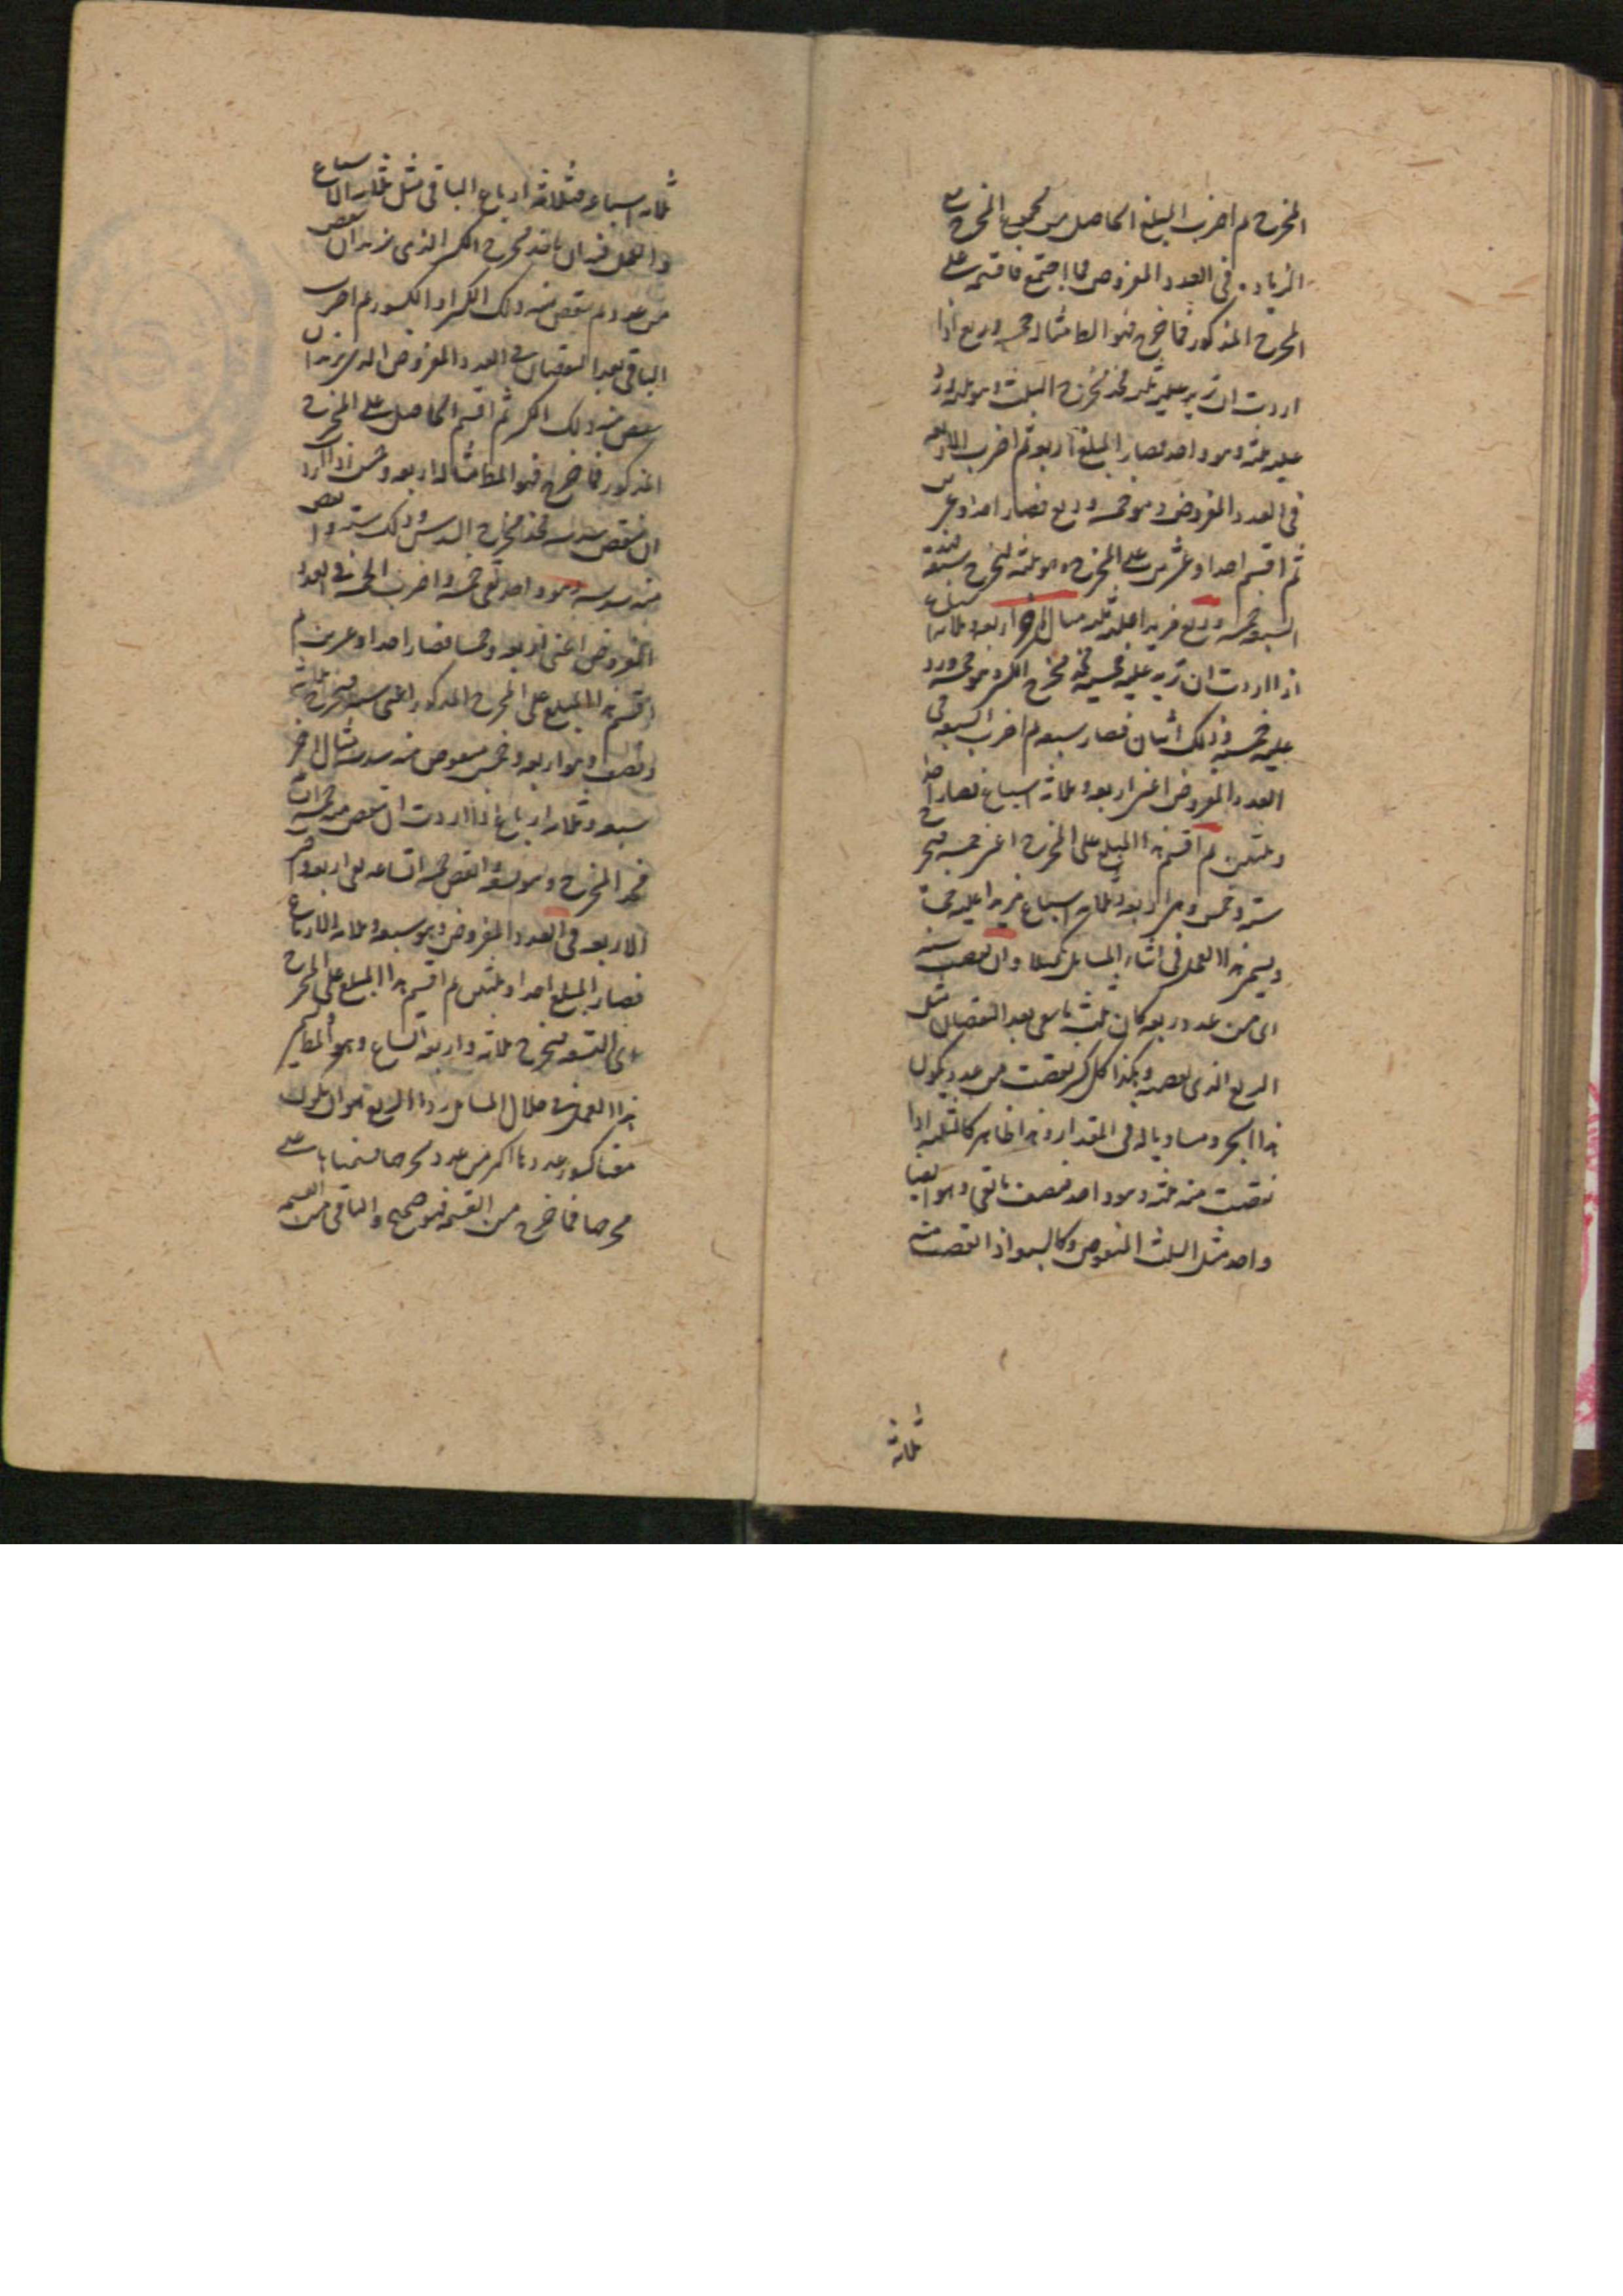 المخرج ثم اضرب المبلغ الحاصل من مجموع المخرج مع
الزيادة في العدد المفروض فما اجتمع فاقسمه على
المخرج المذكور فما خرج فهو المط مثاله خمسة وربع اذا
اردت ان تزيد عليه ثلثه فخذ مخرج الثلث وهو ثلثة وزد
عليه ثلثه وهو واحد فصار المبلغ اربعة ثم اضرب الاربعة
في العدد المفروض وهو خمسة وربع فصار احدا وعشرين
ثم اقسم احدا وعشرين على المخرج وهو ثلثة فيخرج سبعة
السبعة خمسة وربع مزيدا عليه ثلثه مثال اخر اربعة وثلاثة اسباع
اذا اردت ان تزيد عليه خمسيه فخذ مخرج الكسر وهو خمسة وزد
عليه خمسيه وذلك اثنان فصار سبعة ثم اضرب السبعة في
العدد المفروض اعني اربعة وثلاثة اسباع فصار احدا
وثلثين ثم اقسم هذا المبلغ على المخرج اعني خمسة فيخرج
ستة وخمس وهي اربعة وثلاثة اسباع مزيدا عليه خمساه
ويسمى هذا العمل في اثناء المسايل تكميلا وان نقصت منه
اى من عدد ربعه كان ثلث ما بقى بعد النقصان مثل
الربع الذى نقصته وهكذا كل كسر نقصت من عدد يكون
هذا الجزء مساويا له في المقدار وهذا ظاهر كالثلثة اذا
نقصت منه ثلثه وهو واحد فنصف ما بقى وهو ايضا
واحد مثل الثلث المنقوص وكالسبعة اذا نقصت منه
ثلاثة
ثلاثة اسباعه فثلاثة ارباع الباقى مثل ثلاثة الاسباع
والعمل فيه ان تاخذ مخرج الكسر الذى تريد ان تنقص
من عدد ثم تنقص منه ذلك الكسر او الكسور ثم اضرب
الباقى بعد النقصان في العدد المفروض الذى تريد ان
تنقص منه ذلك الكسر ثم اقسم الحاصل على المخرج
المذكور فما خرج فهو المط مثاله اربعة وخمس اذا اردت
ان تنقص سدسه فخذ مخرج السدس وذلك ستة وانقص
منه سدسه وهو واحد بقى خمسة واضرب الخمسة في العدد
المفروض اعني اربعة وخمسا فصار احدا وعشرين ثم
اقسم هذا المبلغ على المخرج المذكور اعني ستة فيخرج ثلاثة
ونصف وهو اربعة وخمس منقوص منه سدسه مثال اخر
سبعة وثلاثة ارباع اذا اردت ان تنقص منه خمسة اتساعه
فخذ المخرج وهو تسعة وانقص خمسة اتساعه بقى اربعة واضرب
الاربعة في العدد المفروض وهو سبعة وثلاثة الارباع
فصار المبلغ احدا وثلثين ثم اقسم هذا المبلغ على المخرج
اى التسعة فيخرج ثلاثة واربعة اتساع وهو المط
هذا العمل في خلال المسايل ردا
معنا كسور عددها اكثر من عدد مخرجها قسمناها على
مخرجها فما خرج من القسمة فهو صحيح والباقى من القسمة